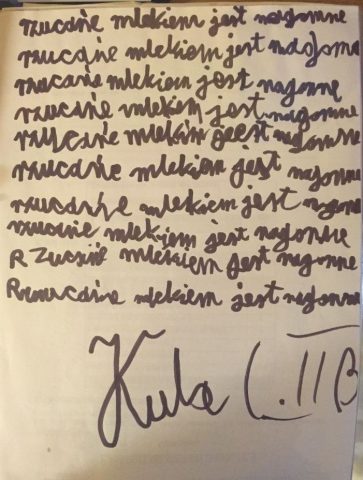 rzucanie mlekiem jest nagonne
rzucanie mlekiem jest nagonne
rzucanie mlekiem jest nagonne
rzucanie mlekiem jest nagonne
rzucanie mlekim jeest nagonnne
rzucanie mlekiem jest nagonne
rzucanie mlekiem jest nagonne
rzucanie mlekjem jest nagonne
R Zucanie mlekiem jest nagonne
Rzucanie mlekiem jest nagonne
Kuba C. III B